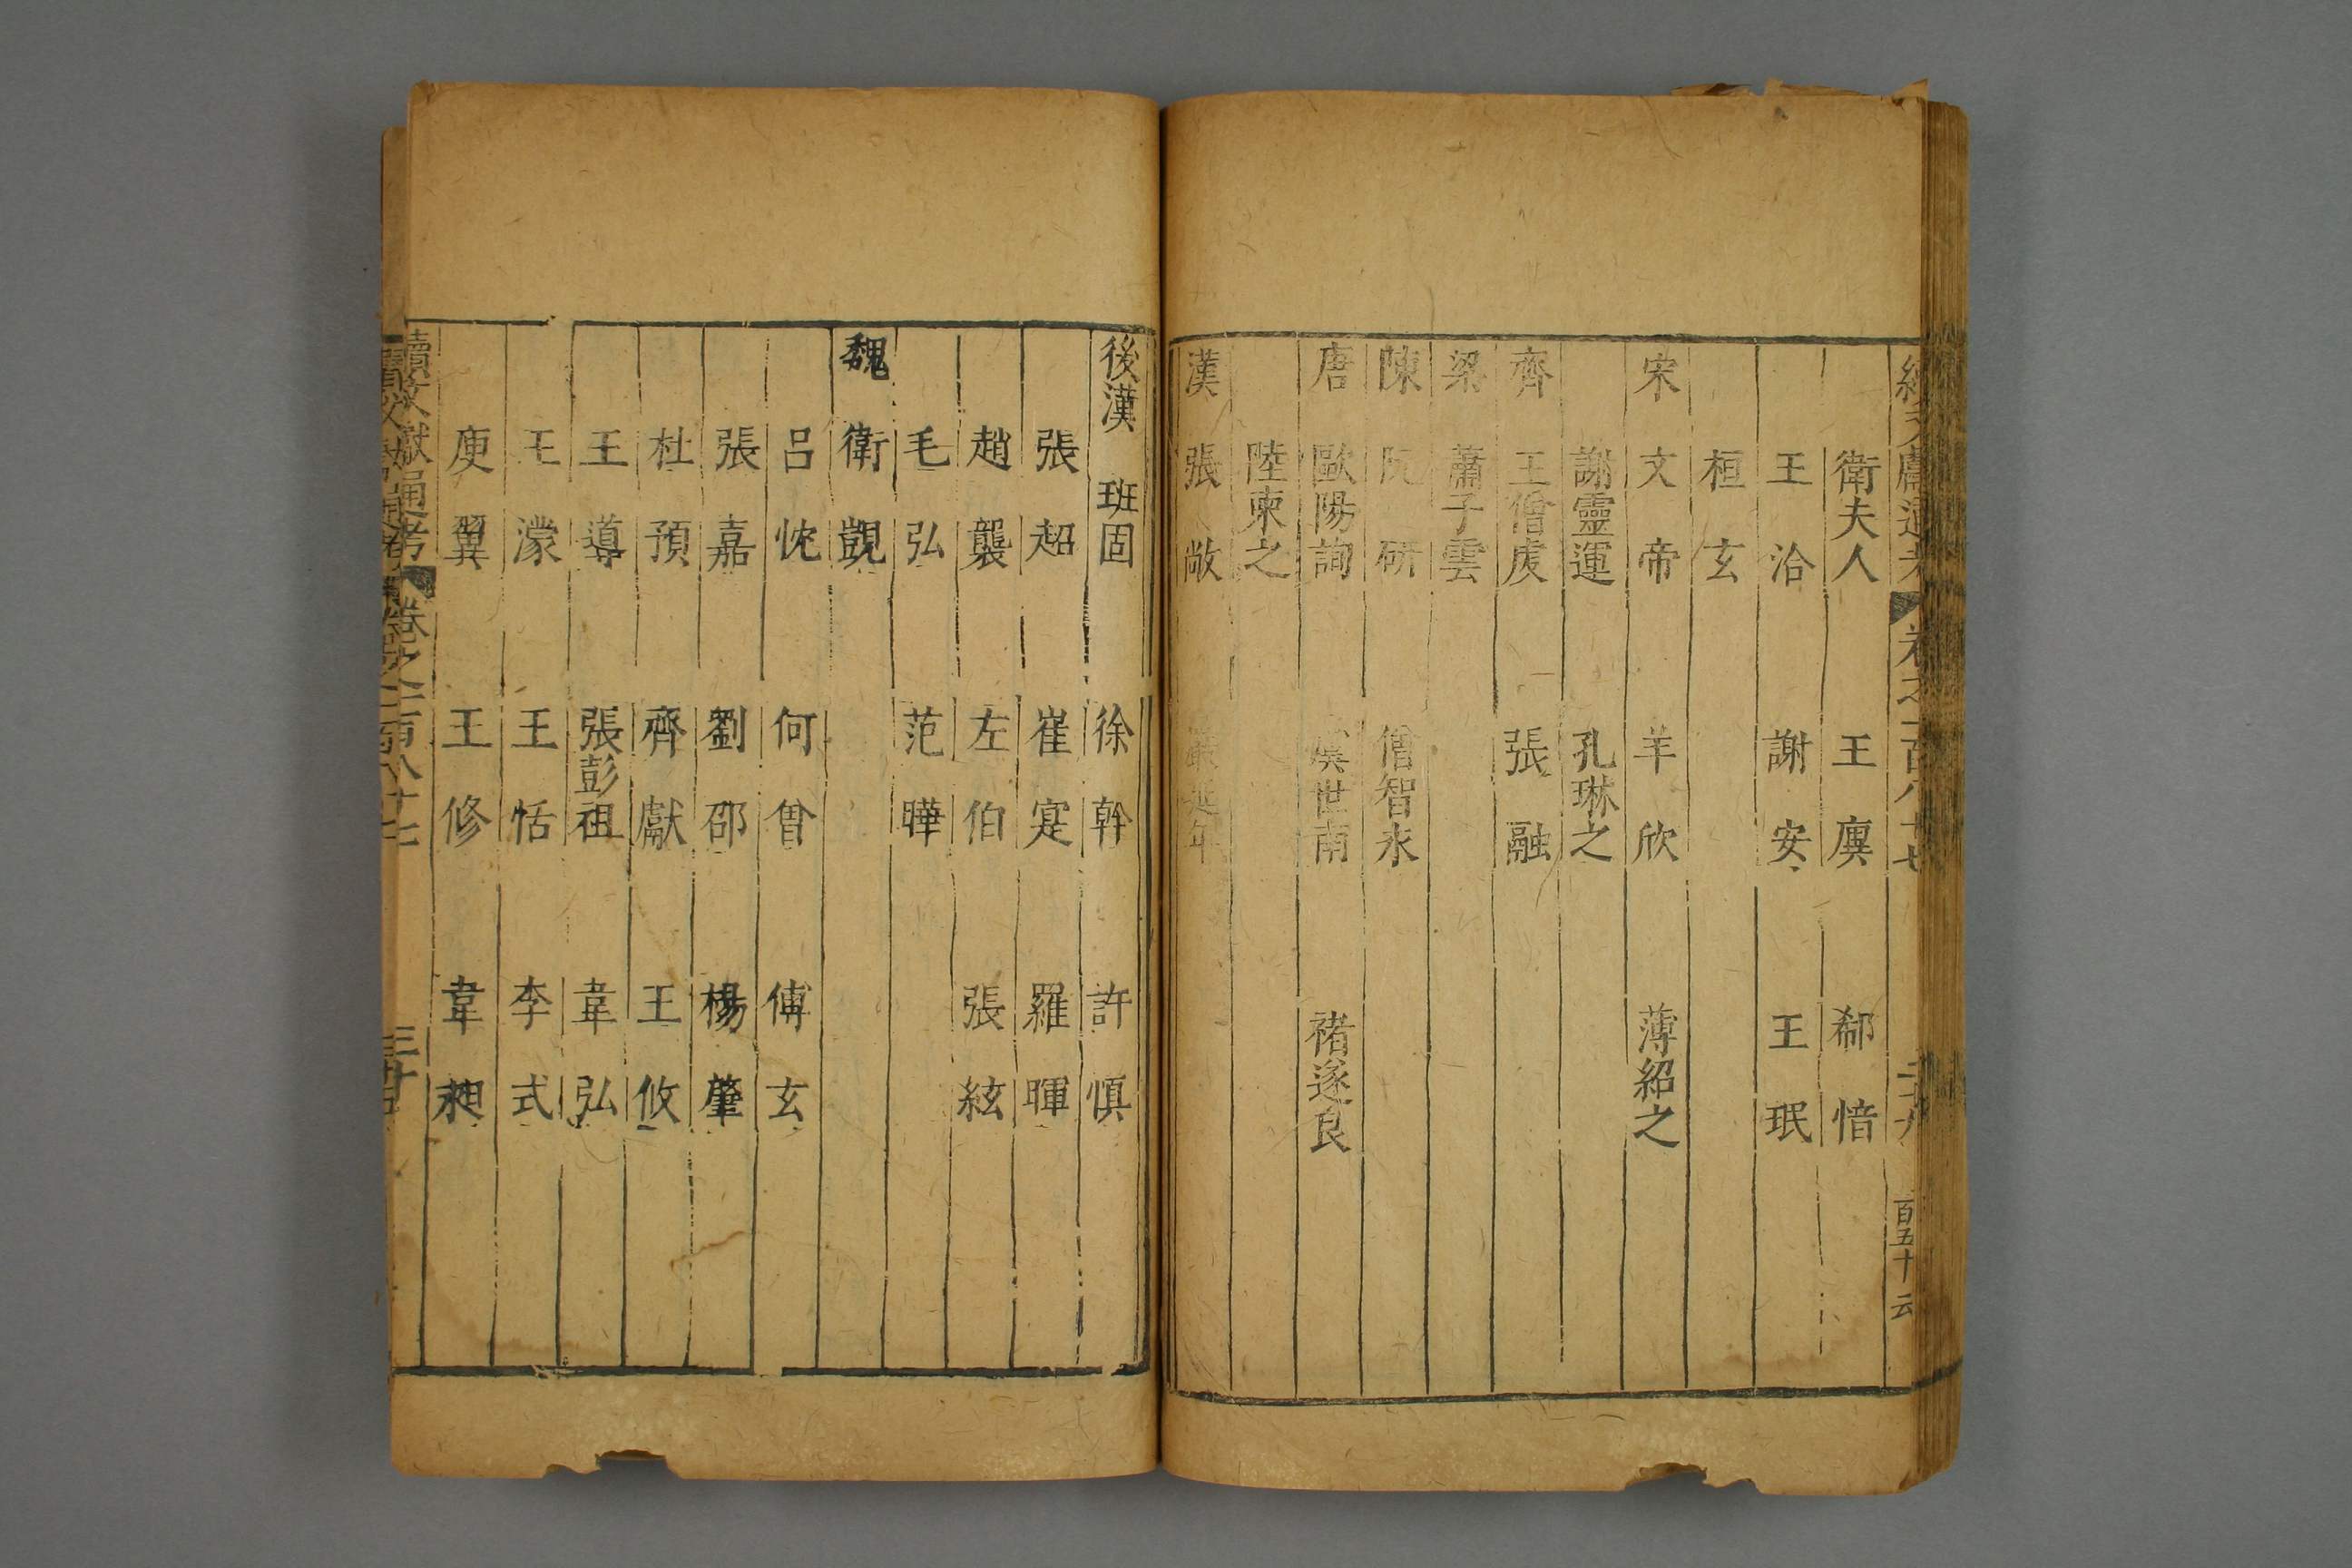 衛夫人 王廙 郗愔
王洽 謝安 王珉
桓玄
宋 文帝 羊欣 薄紹之
謝靈運 孔琳之
齊 王僧虔 張融
梁 蕭子雲
陳 阮研 僧智永
唐 歐陽詢 虞世南 褚遂良
陸柬之
漢 張敞 嚴延年
後漢 班固 徐幹 許慎
張超 崔寔 羅暉
趙襲 左伯 張紘
毛弘 范曄
魏 衛覬
呂忱 何曾 傅玄
張嘉 劉邵 楊肇
杜預 齊獻 王攸
王導 張彭祖 韋弘
王濛 王恬 李式
庾翼 王修 韋昶
續文獻通考 卷之一百八十七